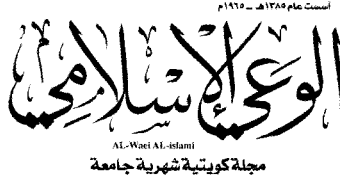 أسست عام ١٣٨٥هـ - ١٩٦٥م
الوعي الإسلامي
AL-Waei AL-islami
مجلة كويتية شهرية جامعة